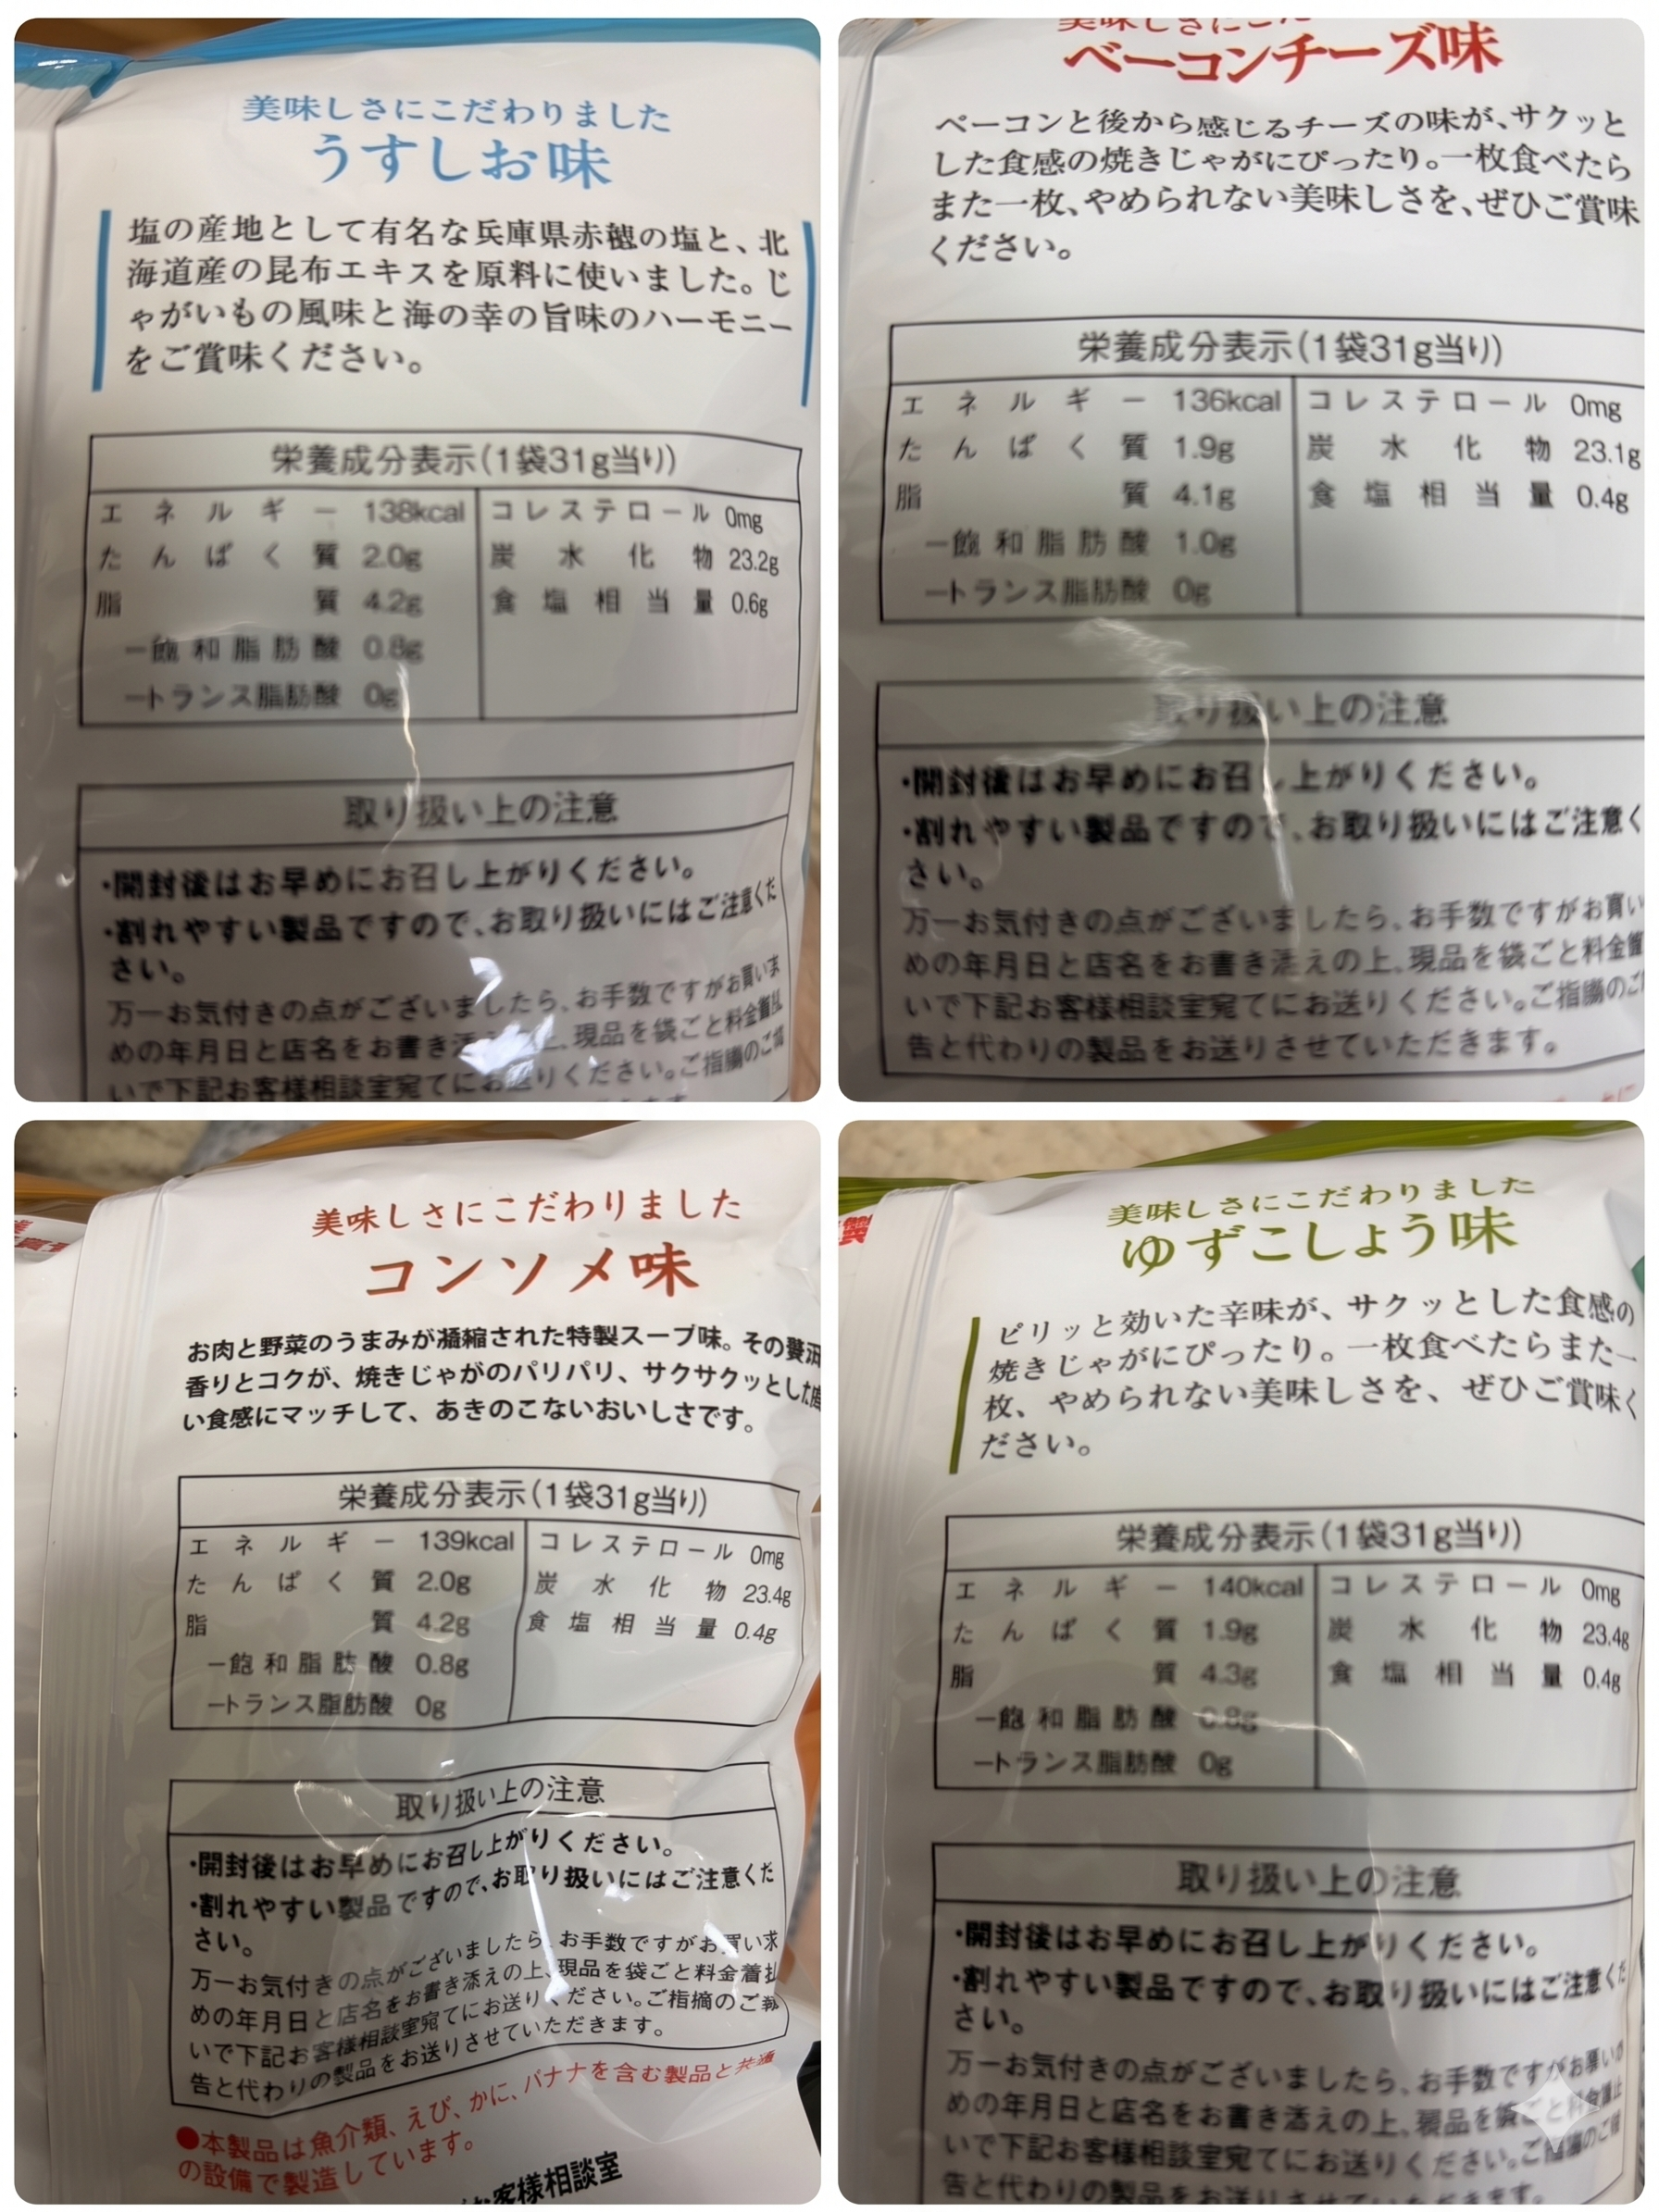 美味しさにこだわりました
うすしお味
塩の産地として有名な兵庫県赤穂の塩と、北
海道産の昆布エキスを原料に使いました。じ
ゃがいもの風味と海の幸の旨味のハーモニー
をご賞味ください。
栄養成分表示(1袋31g当り)
エネルギー 138kcal コレステロール 0mg
たんぱく質 2.0g 炭水化物 23.2g
脂質 4.2g 食塩相当量 0.6g
ー飽和脂肪酸 0.8g
ートランス脂肪酸 0g
取り扱い上の注意
・開封後はお早めにお召し上がりください。
・割れやすい製品ですので、お取り扱いにはご注意くだ
さい。
万一お気付きの点がございましたら、お手数ですがお買いま
めの年月日と店名をお書き 上、現品を袋ごと料金着払
いで下記お客様相談室宛てにお送りください。ご指摘のご
美味しさにこだ
ベーコンチーズ味
ベーコンと後から感じるチーズの味が、サクッと
した食感の焼きじゃがにぴったり。一枚食べたら
また一枚、やめられない美味しさを、ぜひご賞味
ください。
栄養成分表示(1袋31g当り)
エネルギー 136kcal コレステロール 0mg
たんぱく質 1.9g 炭水化物 23.1g
脂質 4.1g 食塩相当量 0.4g
ー飽和脂肪酸 1.0g
ートランス脂肪酸 0g
取り扱い上の注意
・開封後はお早めにお召し上がりください。
・割れやすい製品ですので、お取り扱いにはご注意く
さい。
万一お気付きの点がございましたら、お手数ですがお買い
めの年月日と店名をお書き添えの上、現品を袋ごと料金
いで下記お客様相談室宛てにお送りください。ご指摘のご
告と代わりの製品をお送りさせていただきます。
美味しさにこだわりました
コンソメ味
お肉と野菜のうまみが凝縮された特製スープ味。その贅沢
香りとコクが、焼きじゃがのパリパリ、サクサクッとした
い食感にマッチして、あきのこないおいしさです。
栄養成分表示(1袋31g当り)
エネルギー 139kcal コレステロール 0mg
たんぱく質 2.0g 炭水化物 23.4g
脂質 4.2g 食塩相当量 0.4g
ー飽和脂肪酸 0.8g
ートランス脂肪酸 0g
取り扱い上の注意
・開封後はお早めにお召し上がりください。
・割れやすい製品ですので、お取り扱いにはご注意くだ
さい。
万一お気付きの点がございましたら、お手数ですがお買い求
めの年月日と店名をお書き添えの上、現品を袋ごと料金着払
いで下記お客様相談室宛てにお送りください。ご指摘のご報
告と代わりの製品をお送りさせていただきます。
●本製品は魚介類、えび、かに、バナナを含む製品と共通
の設備で製造しています。
お客様相談室
製
美味しさにこだわりました
ゆずこしょう味
ピリッと効いた辛味が、サクッとした食感の
焼きじゃがにぴったり。一枚食べたらまた一
枚、やめられない美味しさを、ぜひご賞味く
ださい。
栄養成分表示(1袋31g当り)
エネルギー 140kcal コレステロール 0mg
たんぱく質 1.9g 炭水化物 23.4g
脂質 4.3g 食塩相当量 0.4g
ー飽和脂肪酸 0.8g
ートランス脂肪酸 0g
取り扱い上の注意
・開封後はお早めにお召し上がりください。
・割れやすい製品ですので、お取り扱いにはご注意くだ
さい。
万一お気付きの点がございましたら、お手数ですがお願いが
めの年月日と店名をお書き添えの上、現品を袋ごと料金
いで下記お客様相談室宛てにお送りください。ご
告と代わりの製品をお送りさせていただきます。